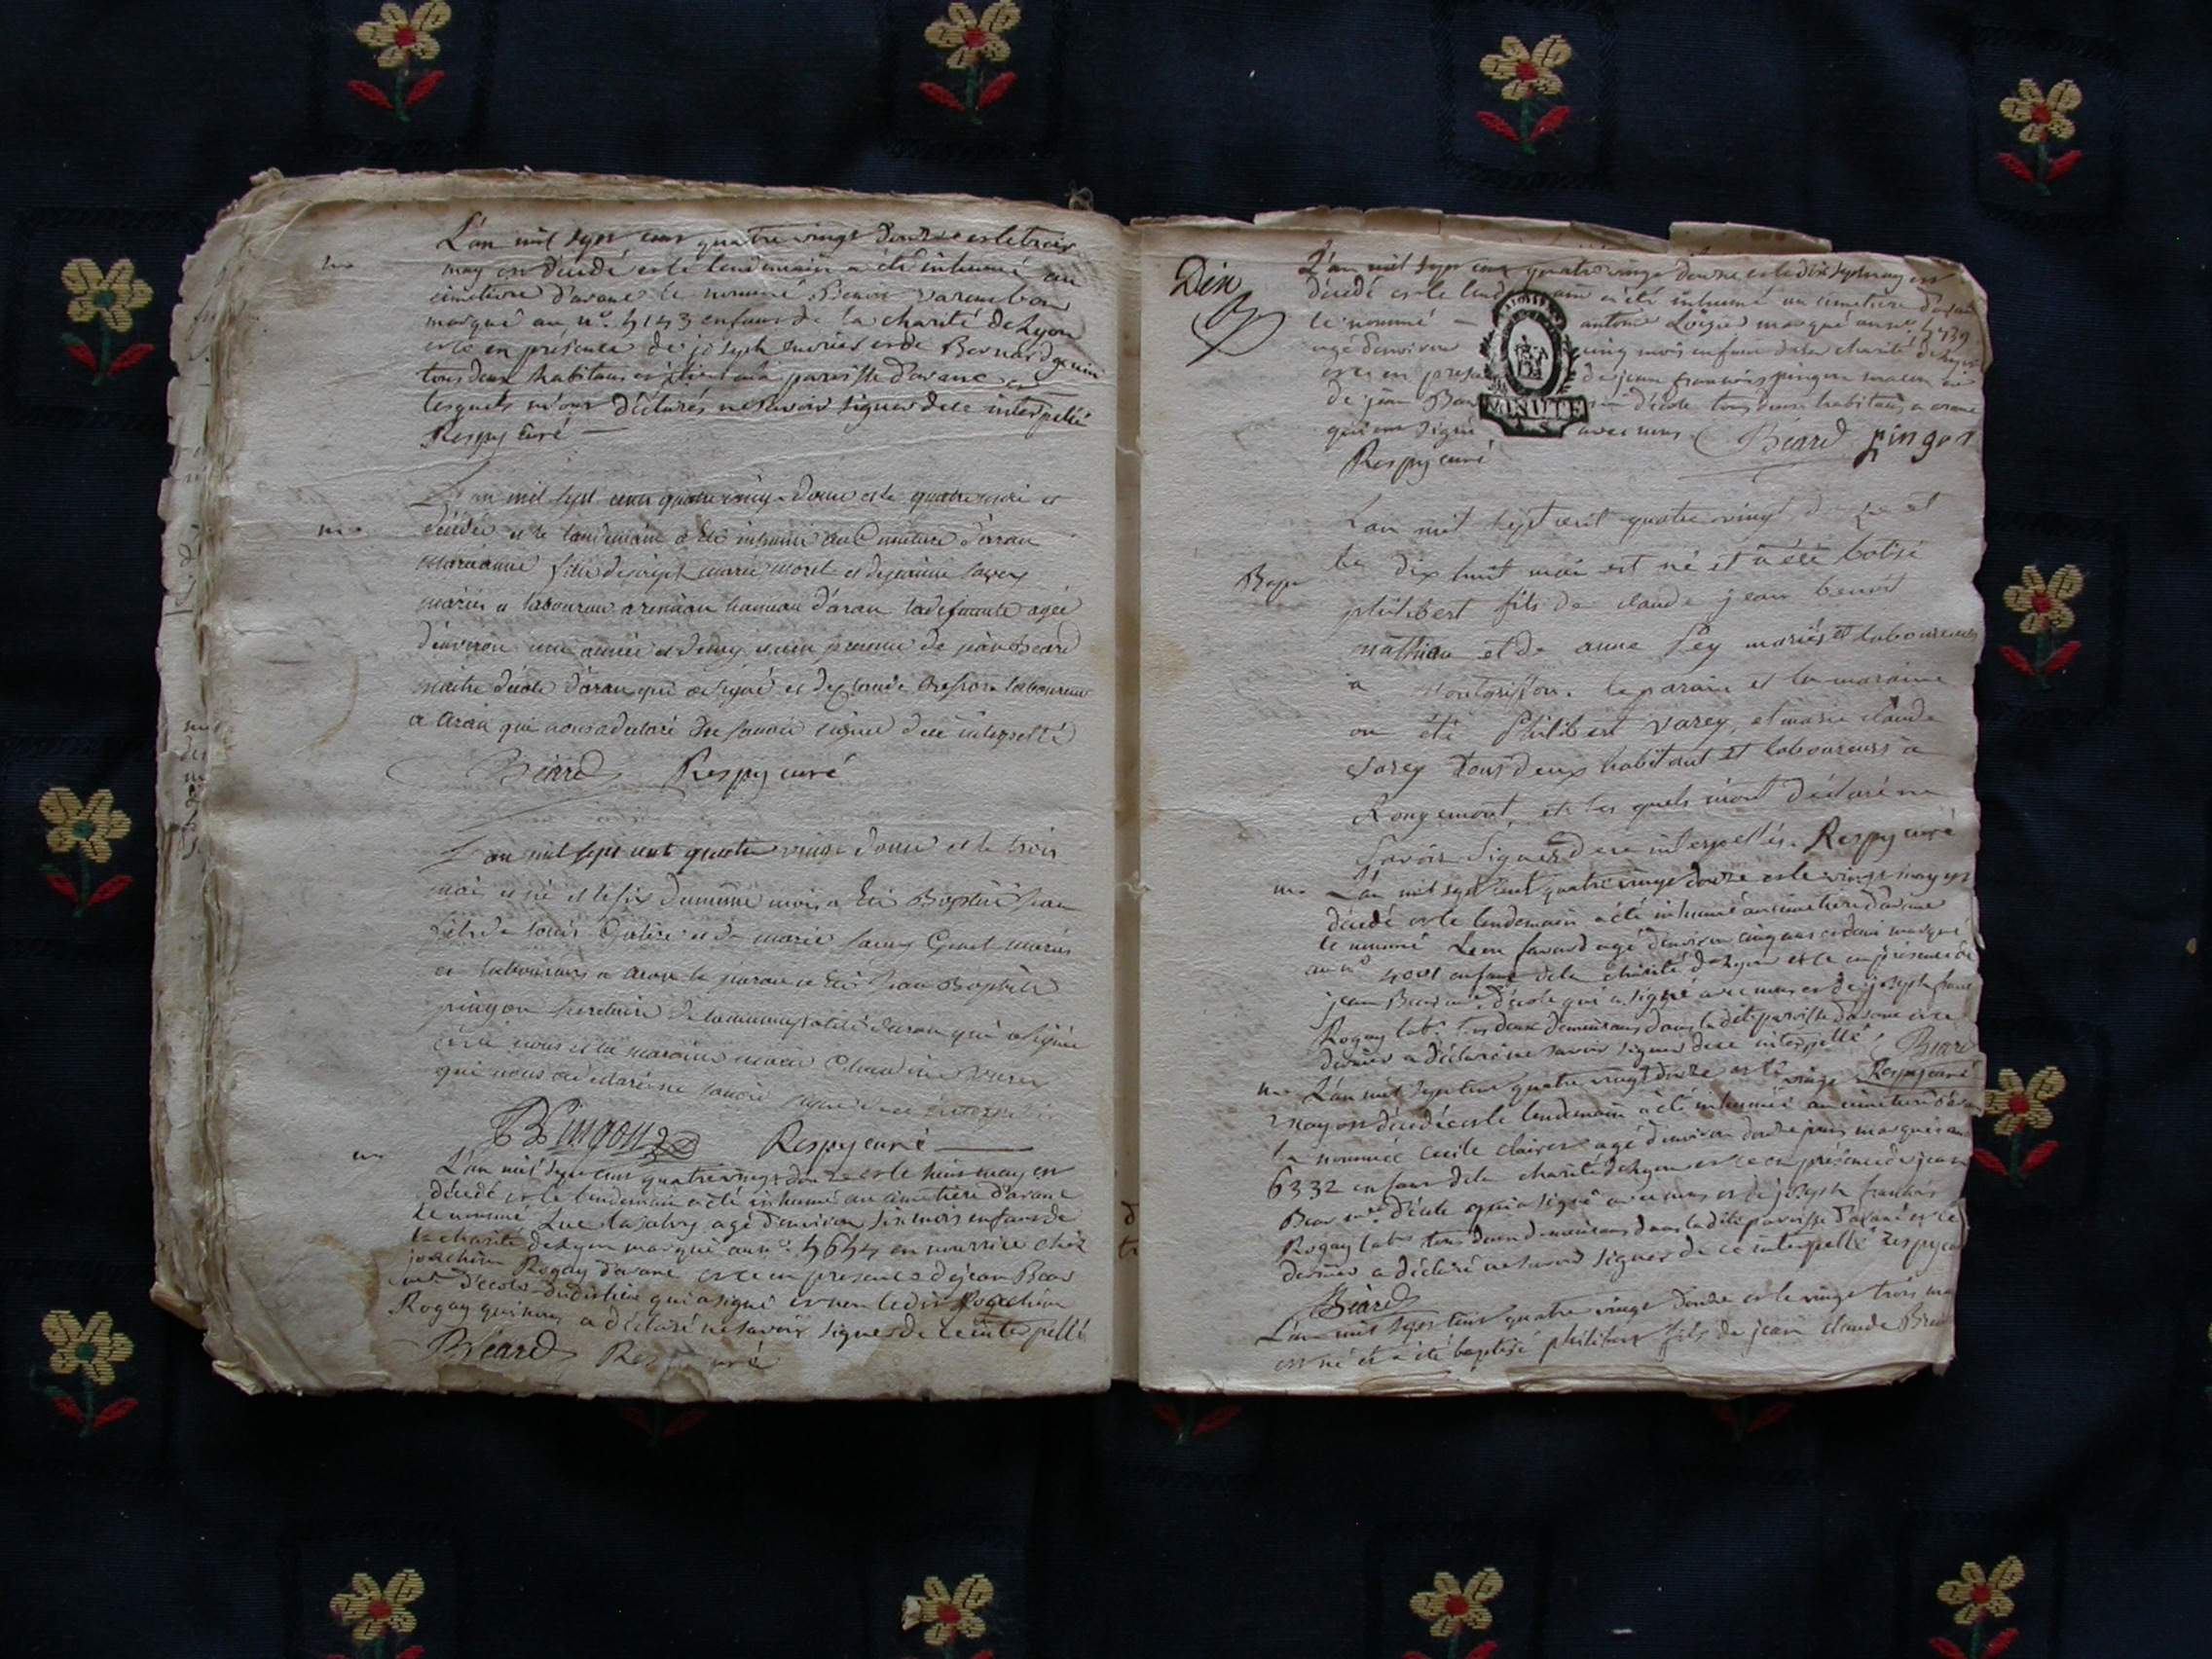 L'an mil sept cent quatre vingt douze et le trois
may est décédé et le lendemain a été inhumé au
cimetiere d'arane le nommé Benoit varembon
marqué au n° 4143 enfant de la charité de Lyon
et ce en présence de joseph et de Bernard
tous deux habitans de la paroisse d'arane
lesquels m'ont déclarés ne savoir signer de ce interpellé
Respy curé
m.
L'an mil sept cent quatre vingt douze et le quatre mai est
décédée et le landemain a été inhumée au Cimetiere d'aran
marianne fille de joseph marie moret et de
mariés et laboureur a hameau d'aran la defunte agée
d'environ une année et demy et ce en presence de jean Beard
maitre d'école d'aran qui a signé et de claude laboureur
a aran qui nous a declaré ne savoir signer de ce interpellé
Béard Respy curé
L'an mil sept cent quatre vingt douze et le trois
mai est né et le six du meme mois a été Baptisé jean
fils de louis et de marie mariés
et laboureurs a aran le parain a été jean Baptiste
pingon secretaire de la municipalité d'aran qui a signé
avec nous et la maraine marie Claudine
qui nous a declaré ne savoir signer de ce interpellée
Pingon Respy curé
m.
L'an mil sept cent quatre vingt douze et le huit may est
décédé et le lendemain a été inhumé au cimetiere d'arane
le nommé Luc agé d'environ six mois enfant de
la charité de Lyon marqué au n° 4644 en nourrice chez
joachim Rogay d'arane et ce en presence de jean Bear
m.e d'ecole dudit lieu qui a signé et non ledit joachim
Rogay qui nous a déclaré ne savoir signer de ce interpellé
Béard Respy curé
Dix
L'an mil sept cent quatre vingt douze et le dix sept may est
décédé et le lendemain a été inhumé au cimetiere d'arane
le nommé antoine marqué au n° 4739
agé d'environ cinq mois enfant de la charité de Lyon
et ce en presence de jean francois pingon et
de jean Bear d'école tous deux habitans a arane
qui ont signé avec nous Béard pingon
MINUTE
Respy curé
L'an mil sept cent quatre vingt douze et
Bap
le dix huit mai est né et a été batisé
philibert fils de claude jean benoit
mathieu et de anne Pey mariés et laboureurs
a montgriffon. le parain et la maraine
on été Philibert varey, et marie claude
varey tous deux habitant et laboureurs a
Rougemont, et les quels m'ont déclaré ne
savoir signer de ce interpellés. Respy curé
m.
L'an mil sept cent quatre vingt douze et le vingt may est
décédé et le lendemain a été inhumé au cimetiere d'arane
le nommé Leon favard agé d'environ cinq ans et demi marqué
au n° 4001 enfant de la charité de Lyon et ce en présence de
jean Bear m.e d'école qui a signé avec nous et de joseph franc
Rogay lab.r tous deux demeurans dans la dite paroisse d'arane et ce
dernier a déclaré ne savoir signer de ce interpellé, Beard
Respy curé
m.
L'an mil sept cent quatre vingt douze et le vingt
may est décédée et le lendemain a été inhumée au cimetiere d'arane
la nommée cecile claire agé d'environ douze jours marquée au n°
6332 enfant de la charité de Lyon et ce en présence de jean
Bear m.e d'école qui a signé avec nous et de joseph francois
Rogay lab.r tous deux demeurans dans la dite paroisse d'arane et ce
dernier a déclaré ne savoir signer de ce interpellé Respy curé
Béard
L'an mil sept cent quatre vingt douze et le vingt trois may
est né et a été baptisé philibert fils de jean claude